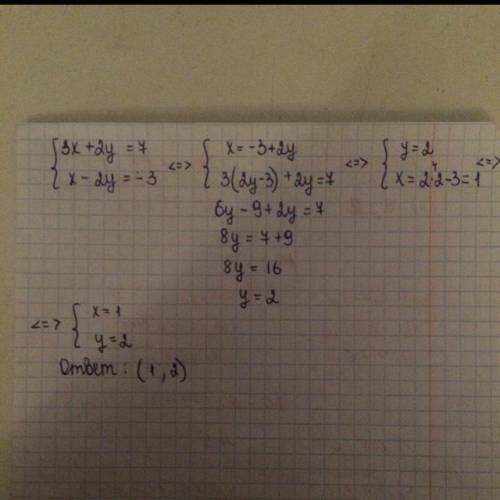 {3x+2y =7 <=> {x=-3+2y <=> {y=2
{x-2y=-3 {3(2y-3)+2y=7 {x=2·2-3=1 <=>
6y-9+2y=7
8y=7+9
8y=16
y=2
<=> {x=1
{y=2
Ответ: (1,2)